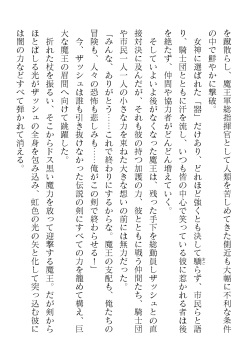 を蹴散らし、魔王軍総指揮官として人間を苦しめてきた側近も大幅に不利な条件
の中で鮮やかに撃破。
女神に選ばれた「器」だけあり、どれほど強くとも決して驕らず、市民らと語
り、騎士団とともに汗を流し、いつも皆の中心で笑っている彼に惹かれる者は後
を絶たず、仲間や協力者がどんどん増えていく。
そしていよいよ後がなくなった魔王は、残った手下を総動員しザッシュとの直
接対決に及んだが、それも彼の持つ加護の力、彼とともに戦う仲間たち、騎士団
や市民一人一人の小さな力を束ねた大きな想いの前には無力だった。
「みんな、ありがとう……これで終わりにするからな。魔王の支配も、俺たちの
冒険も、人々の恐怖も悲しみも、……これで終わらせる！」
今、ザッシュは誰も引き抜けなかった伝説の剣にすべての力を籠めて構え、巨
大な魔王の眉間へ向けて跳躍した。
折れた杖を振るい、そこからドス黒い魔力を放って迎撃する魔王。だが剣から
ほとばしる光がザッシュの全身を包み込み、虹色の光の矢と化して突っ込む彼に
は闇の力などすべて弾かれて消える。